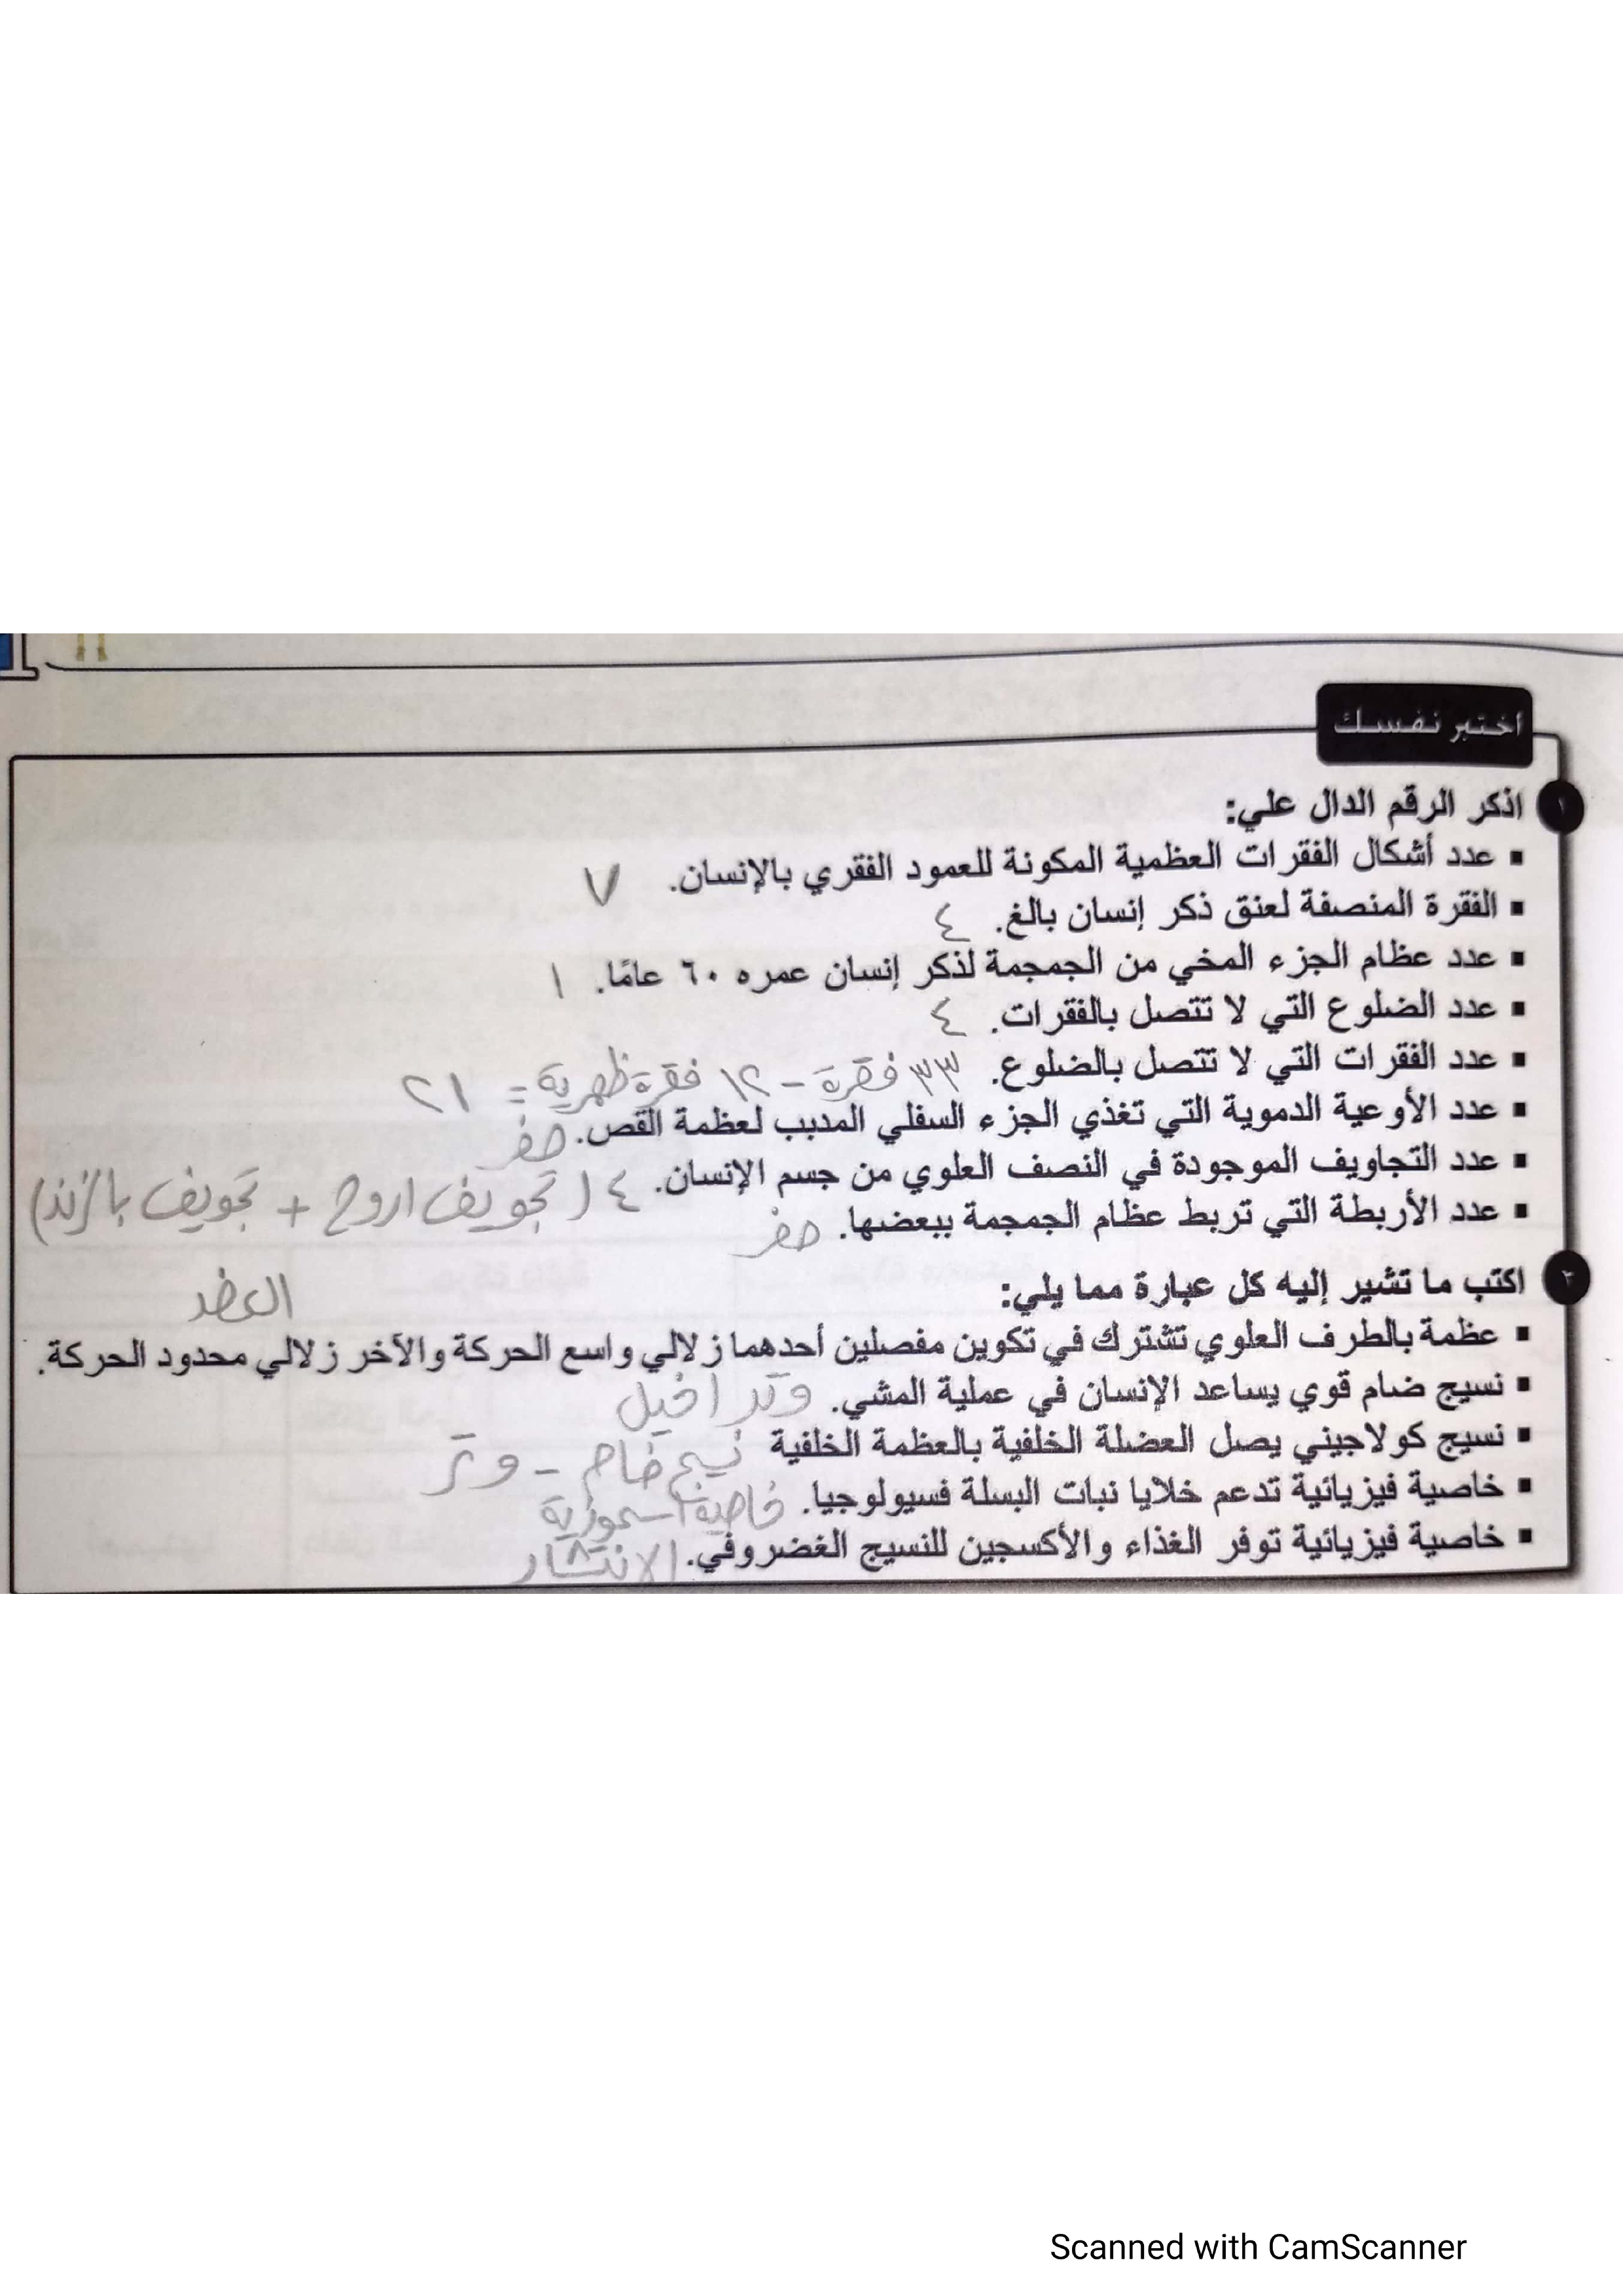 اختبر نفسك
١ اذكر الرقم الدال علي:
▪ عدد أشكال الفقرات العظمية المكونة للعمود الفقري بالإنسان. ٧
▪ الفقرة المنصفة لعنق ذكر إنسان بالغ. ٤
▪ عدد عظام الجزء المخي من الجمجمة لذكر إنسان عمره ٦٠ عامًا. ١
▪ عدد الضلوع التي لا تتصل بالفقرات. ٤
▪ عدد الفقرات التي لا تتصل بالضلوع. ٣٣ فقرة - ١٢ فقرة ظهرية = ٢١
▪ عدد الأوعية الدموية التي تغذي الجزء السفلي المدبب لعظمة القص. صفر
▪ عدد التجاويف الموجودة في النصف العلوي من جسم الإنسان. ٤ (تجويف اروح + تجويف بالزند)
▪ عدد الأربطة التي تربط عظام الجمجمة ببعضها. صفر
٢ اكتب ما تشير إليه كل عبارة مما يلي:
العضد
▪ عظمة بالطرف العلوي تشترك في تكوين مفصلين أحدهما زلالي واسع الحركة والآخر زلالي محدود الحركة.
▪ نسيج ضام قوي يساعد الإنسان في عملية المشي. وتر اخيل
▪ نسيج كولاجيني يصل العضلة الخلفية بالعظمة الخلفية نسيج ضام - وتر
▪ خاصية فيزيائية تدعم خلايا نبات البسلة فسيولوجيا. خاصية اسموزية
▪ خاصية فيزيائية توفر الغذاء والأكسجين للنسيج الغضروفي. الانتشار
Scanned with CamScanner